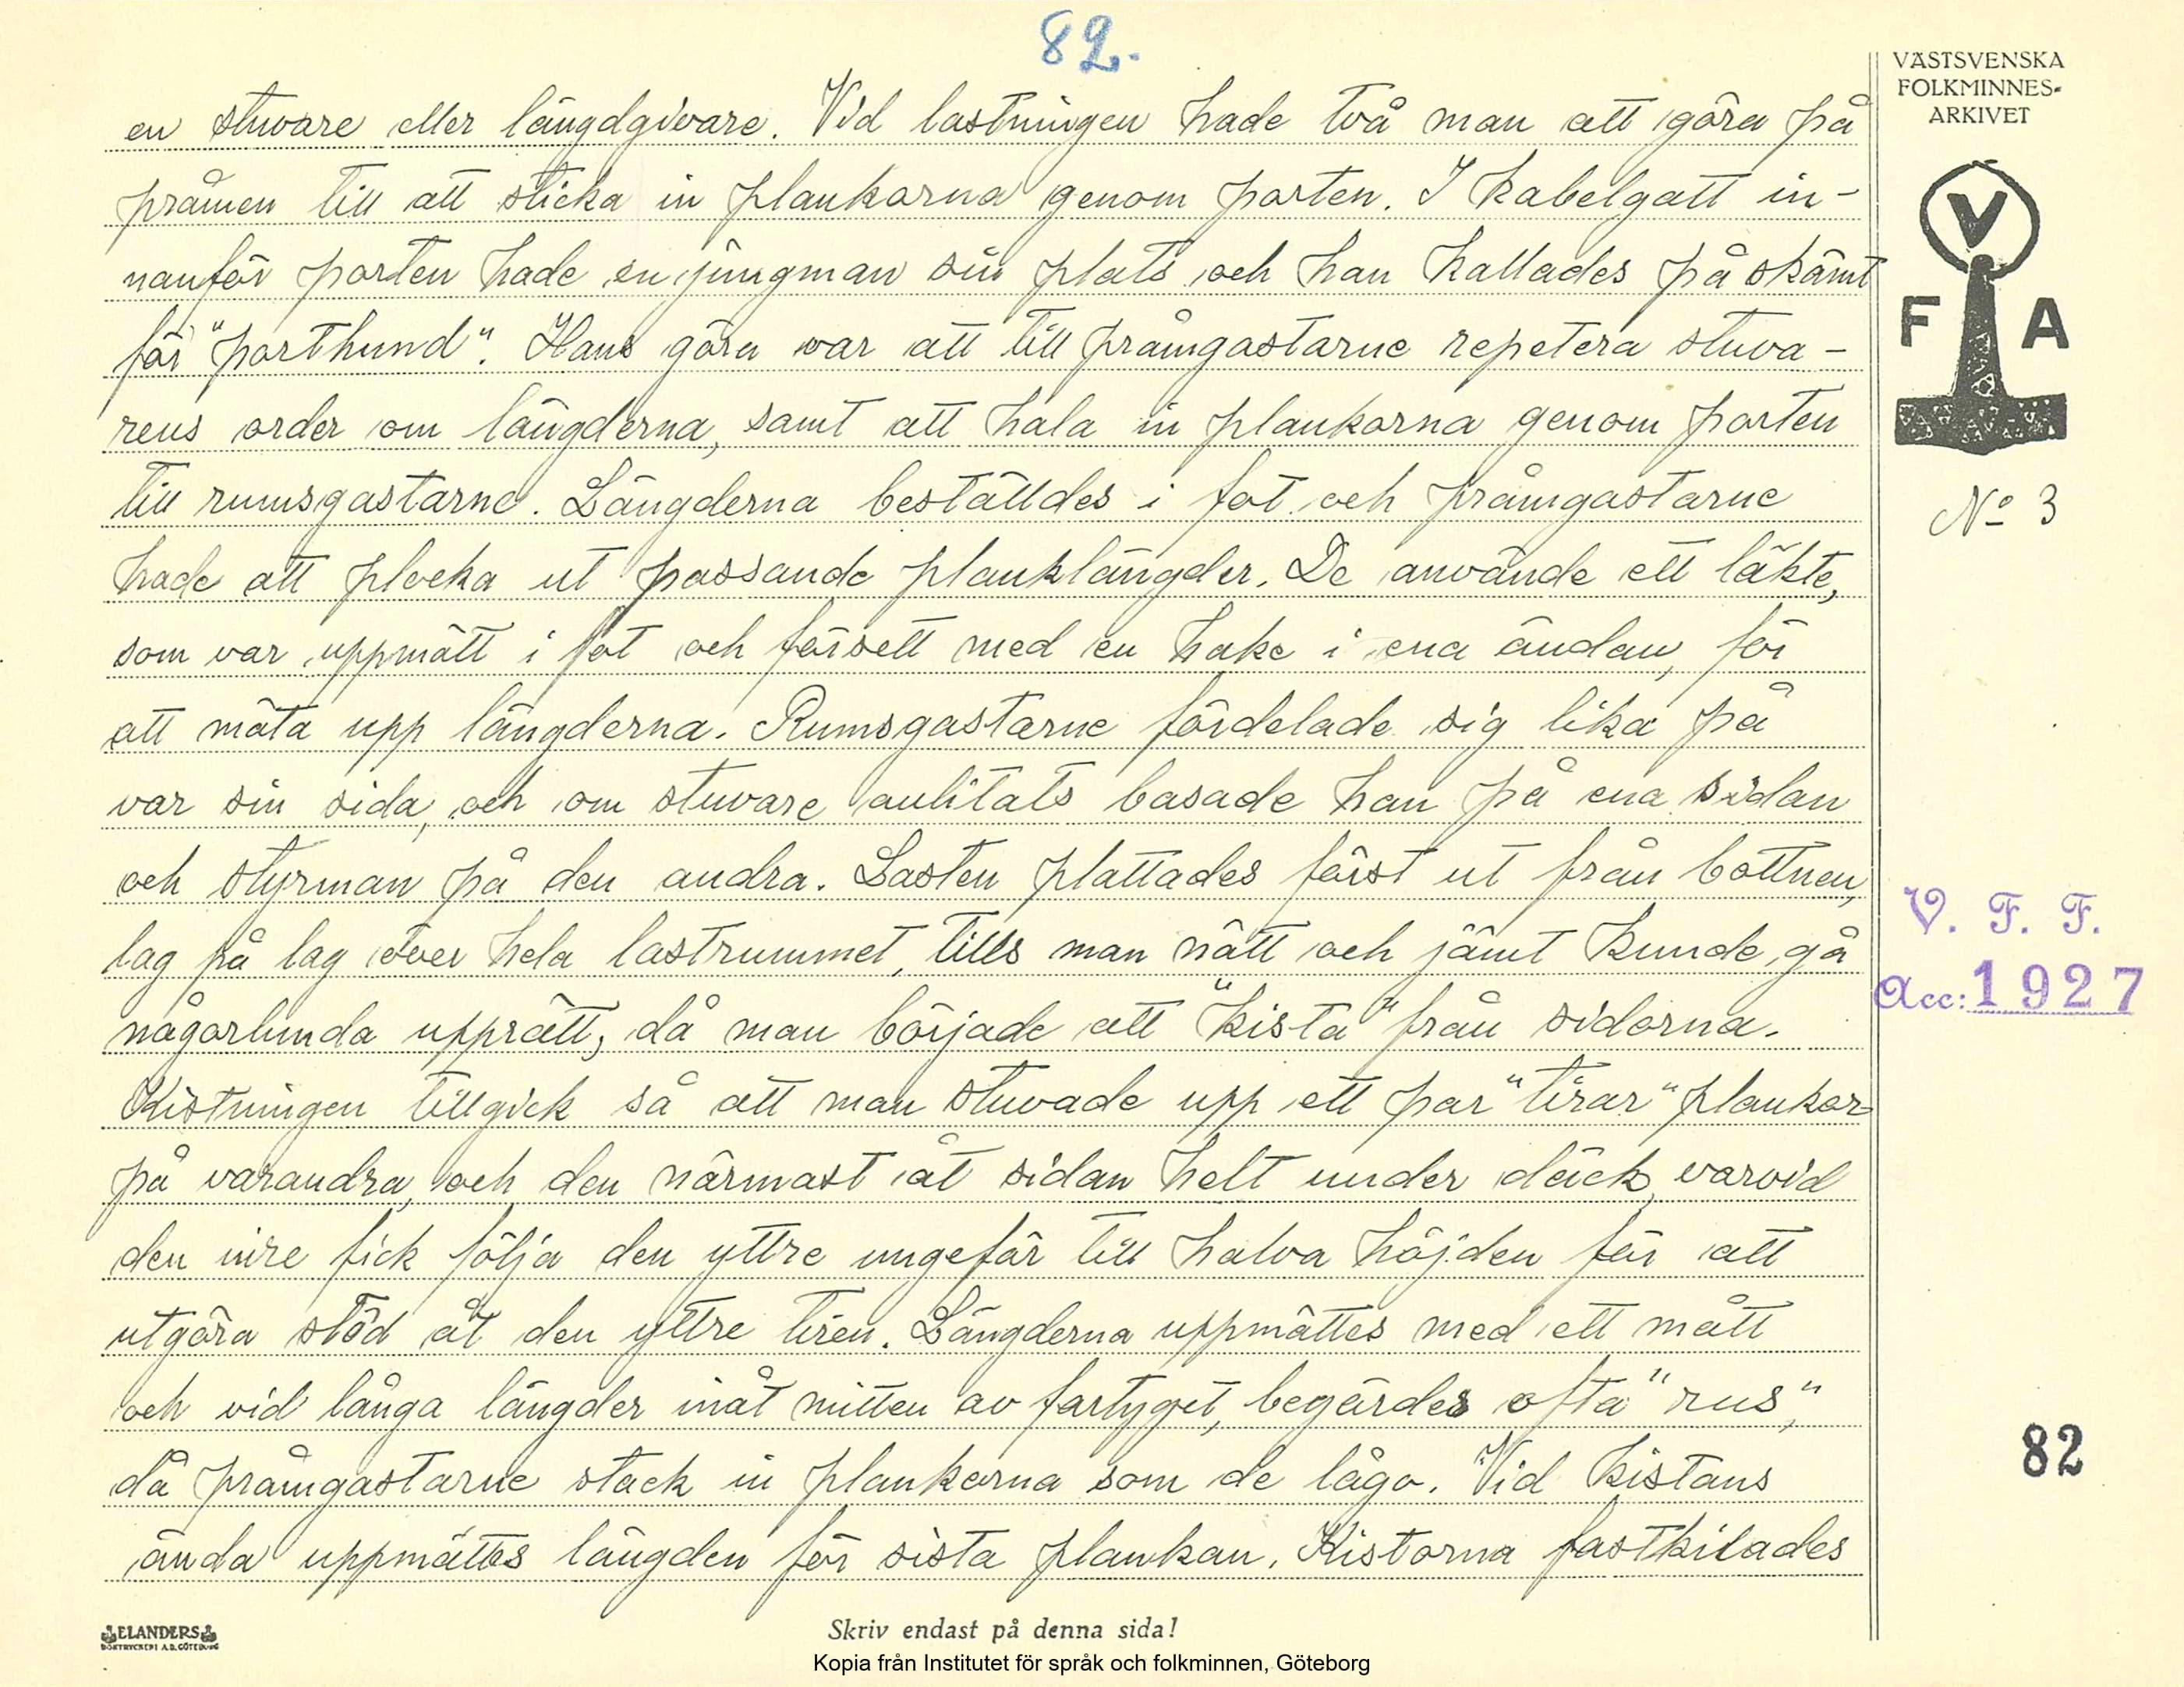 82.
VÄSTSVENSKA
FOLKMINNES-
ARKIVET
en stuvare eller längdgivare. Vid lastningen hade två man att göra på
pråmen till att sticka in plankorna genom porten. I kabelgatt in-
nanför porten hade en jungman sin plats och han kallades på skämt
för "porthund". Hans göra var att till pråmgastarne repetera stuva-
rens order om längderna, samt att hala in plankorna genom porten
till rumsgastarne. Längderna beställdes i fot och pråmgastarne
hade att plocka ut passande planklängder. De använde ett läkte,
som var uppmätt i fot och försett med en hake i ena ändan, för
att mäta upp längderna. Rumsgastarne fördelade sig lika på
var sin sida, och om stuvare anlitats basade han på ena sidan
och styrman på den andra. Lasten plattades först ut från bottnen,
lag på lag över hela lastrummet, tills man nätt och jämt kunde gå
någorlunda upprätt, då man började att "kista" från sidorna.
Kistningen tillgick så att man stuvade upp ett par "tirar" plankor
på varandra, och den närmast åt sidan helt under däck, varvid
den inre fick följa den yttre ungefär till halva höjden för att
utgöra stöd åt den yttre tiren. Längderna uppmättes med ett mått
och vid långa längder inåt mitten av fartyget, begärdes ofta "rus",
då pråmgastarne stack in plankorna som de lågo. Vid kistans
ända uppmättes längden för sista plankan. Kistorna fastkilades
V
F A
No 3
V. F. F.
Acc: 1927
82
ELANDERS
BOKTRYCKERI A.B. GÖTEBORG
Skriv endast på denna sida!
Kopia från Institutet för språk och folkminnen, Göteborg